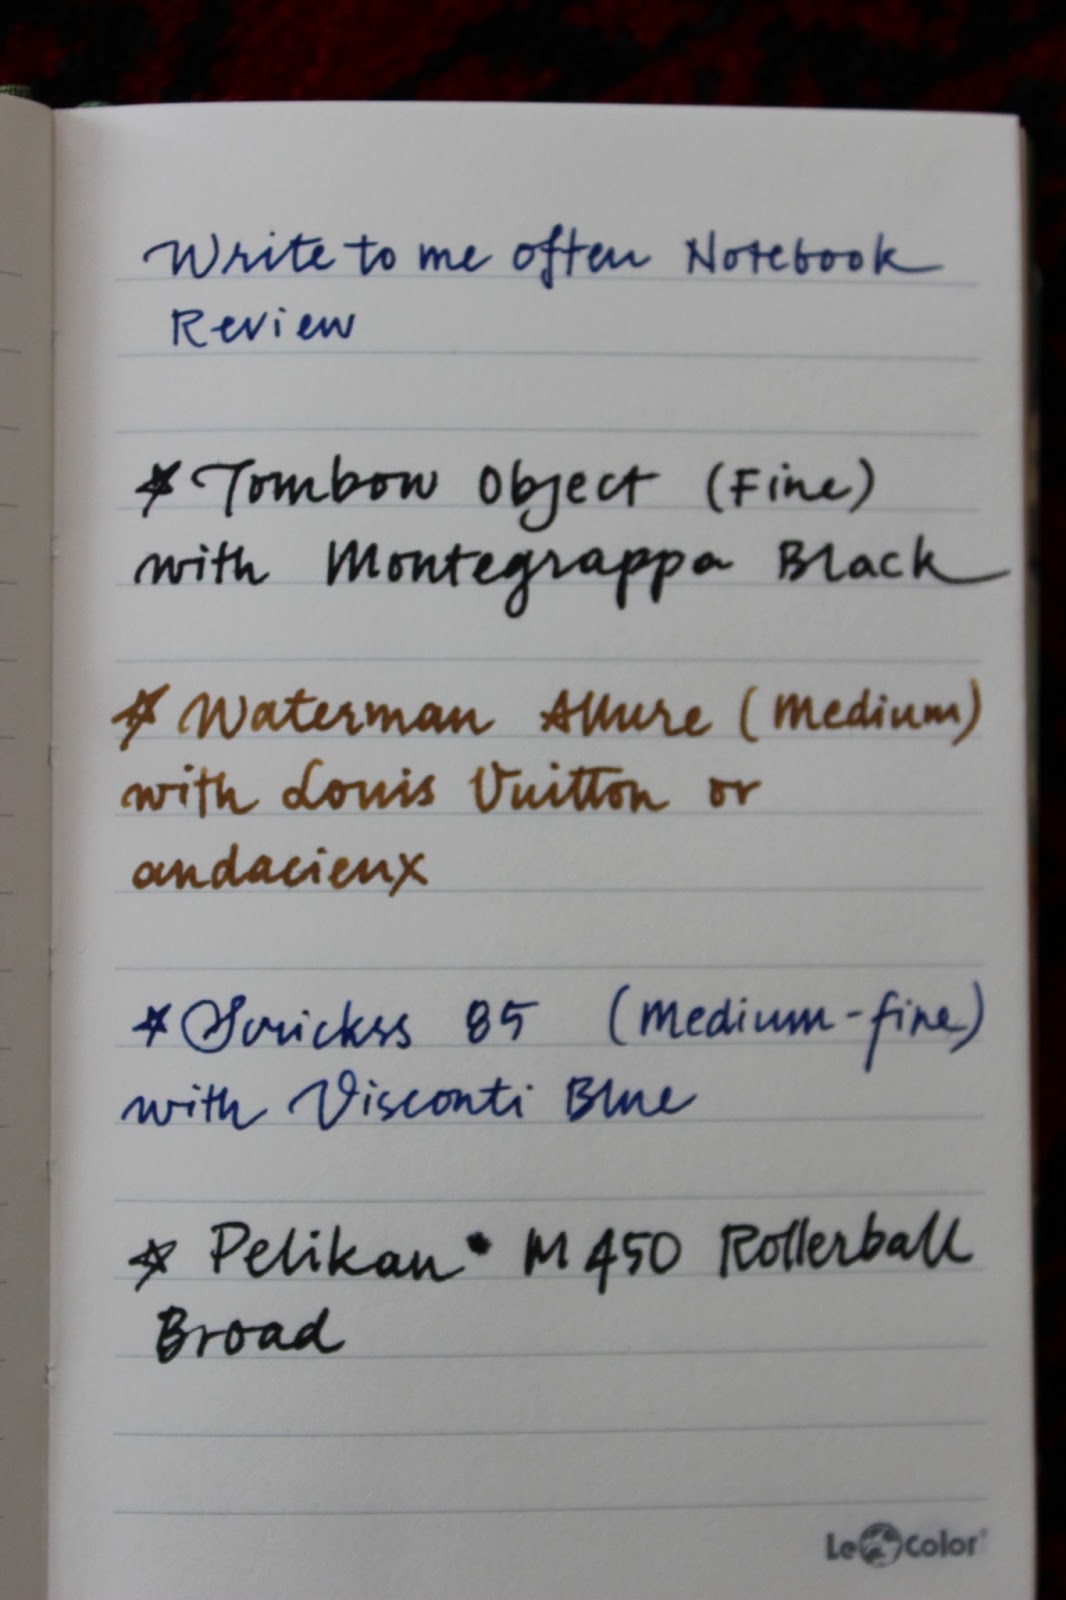 Write to me often Notebook
Review
☆ Tombow Object (Fine)
with Montegrappa Black
☆ Waterman Allure (Medium)
with Louis Vuitton or
audacieux
☆ Scrickss 85 (Medium-fine)
with Visconti Blue
☆ Pelikan M450 Rollerball
Broad
Le Color